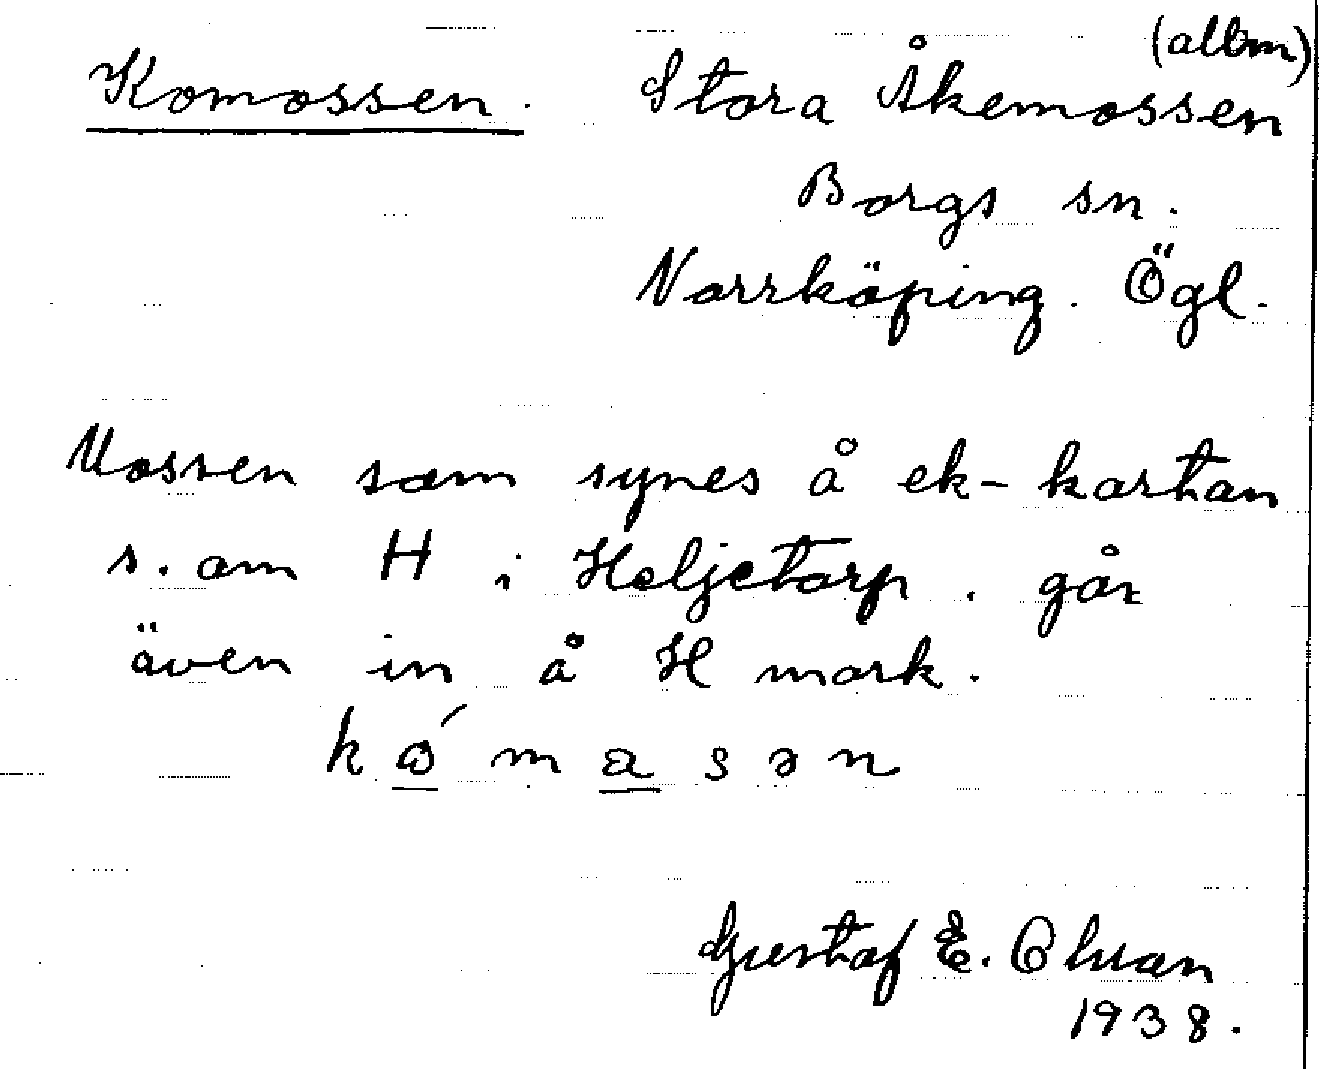 Komossen. Stora Åkemossen (allm)
Borgs sn.
Norrköping. Ögl.
Mossen som synes å ek-kartan
s. om H i Heljetorp. går
även in å H mark.
kómasən
Gustaf E. Olson
1938.